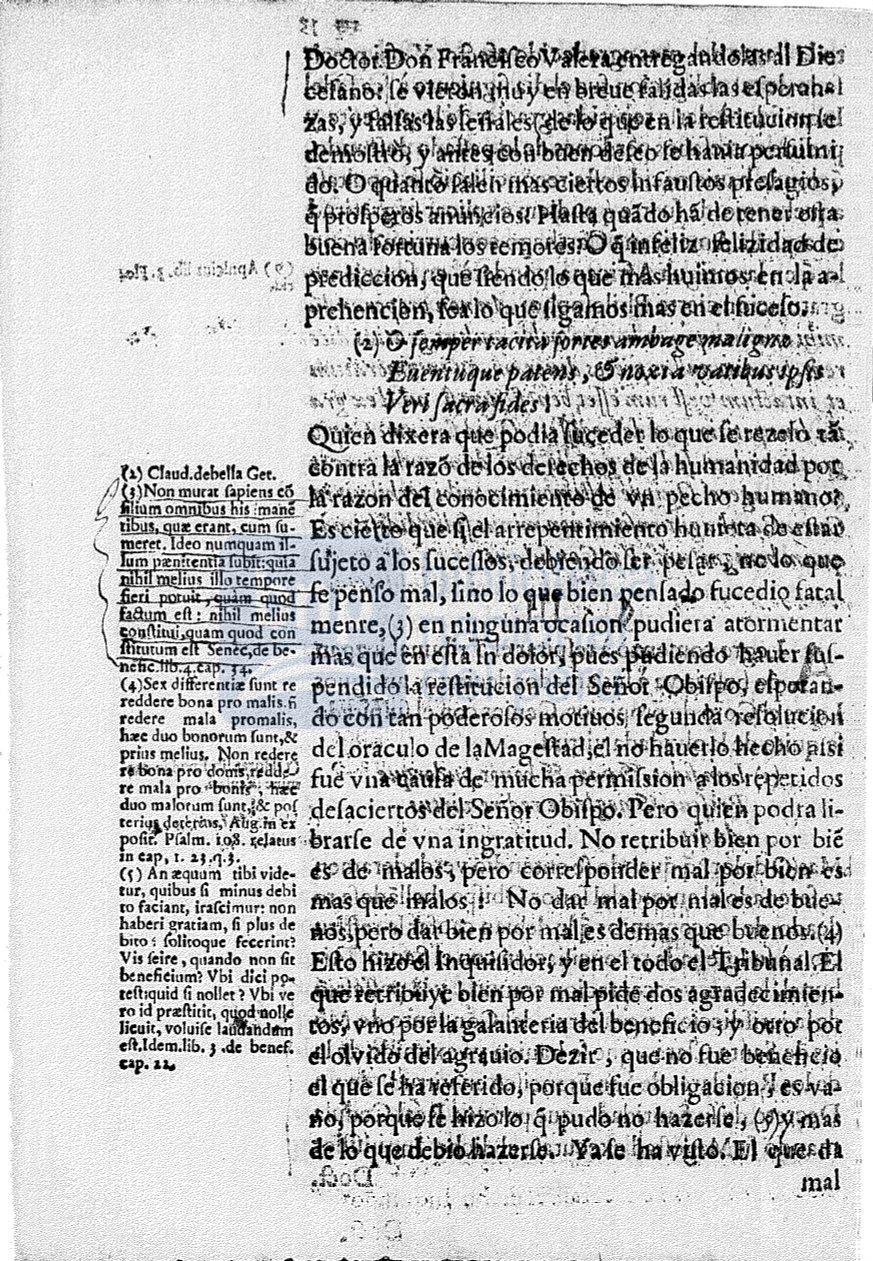 Doctor Don Francisco Valera entregandolas al Dio-
cesano: se vieron muy en breue falidas las esperan-
zas, y falsas las señales de lo que en la restitucion se
demostrò, y antes con buen deseo se hauia preuini
do. O quanto salen mas ciertos infaustos presagios,
q̃ prosperos anuncios! Hasta quãdo hã de tener esta
buena fortuna los temores! O q̃ infeliz felizidad de
prediccion, que siendo lo que mas huimos en la a-
prehencion, sea lo que sigamos mas en el suceso.
(2) O semper tacita sortes ambage maligna
Euentuque patens, & nox era vatibus ipsis
Veri sacra fides!
Quien dixera que podia suceder lo que se rezelò tã
contra la razõ de los derechos de la humanidad por
la razon del conocimiento de vn pecho humano?
Es cierto que si el arrepentimiento huuiera de estar
sujeto a los sucessos, debiendo ser pesar, no lo que
se pensò mal, sino lo que bien pensado sucedio fatal
mente, (3) en ninguna ocasion pudiera atormentar
mas que en esta su dolor, pues pudiendo hauer sus-
pendido la restitucion del Señor Obispo, esperan-
do con tan poderosos motiuos, segunda resolucion
del oraculo de la Magestad, el no hauerlo hecho assi
fuè vna causa de mucha permission a los repetidos
desaciertos del Señor Obispo. Pero quien podra li-
brarse de vna ingratitud. No retribuir bien por biẽ
es de malos, pero corresponder mal por bien es
mas que malos! No dar mal por mal es de bue-
nos, pero dar bien por mal es demas que buenos. (4)
Esto hizo el Inquisidor, y en el todo el Tribunal. El
que retribuye bien por mal pide dos agradecimien-
tos, vno por la galanteria del beneficio; y otro por
el olvido del agrauio. Dezir, que no fue beneficio
el que se ha referido, porque fue obligacion, es va-
no, porque se hizo lo q̃ pudo no hazerse, (5) y mas
de lo que debio hazerse. Ya se ha visto. El que da
mal
(2) Claud. debella Get.
(3) Non mutat sapiens cõ
silium omnibus his mane
tibus, quæ erant, cum su-
meret. Ideo numquam il-
lum pænitentia subit: quia
nihil melius illo tempore
fieri potuit, quàm quod
factum est: nihil melius
constitui, quam quod con
stitutum est Senec, de be-
nefic. lib. 4. cap. 34.
(4) Sex differentiæ sunt re
reddere bona pro malis. ñ
redere mala promalis,
hæc duo bonorum sunt, &
prius melius. Non redere
re bona pro donis, redde-
re mala pro bonis, hæc
duo malorum sunt, & pos
terius deterius, Aug. in ex
posit. Psalm. 108. relatus
in cap, 1. 23. q. 3.
(5) An æquum tibi vide-
tur, quibus si minus debi
to faciant, irascimur: non
haberi gratiam, si plus de
bito: solitoque fecerint?
Vis seire, quando non sit
beneficium? Vbi dici po-
test quid si nollet? Vbi ve
ro id præstitit, quod nolle
licuit, voluise laudandum
est. Idem. lib. 3. de benef.
cap. 22.